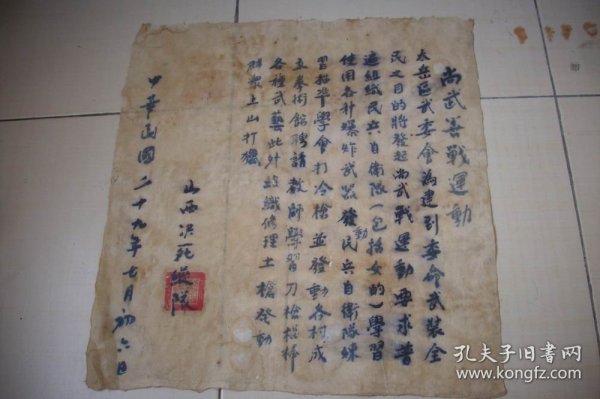 尚武善戰運動
太岳區武委會為達到委會武裝全
民之目的將發起尚武戰運動要求普
遍組織民兵自衛隊（包括女的）學習
使用各种爆炸武器發動民兵自衛隊練
習描準學會打冷槍並發動各村成
立拳術館聘請教師學習刀槍棍棒
各種武藝此外組織修理土槍發動
群眾上山打獵
山西決死縱隊
中華民國二十九年七月初六日
孔夫子旧书网
www.kongfz.com